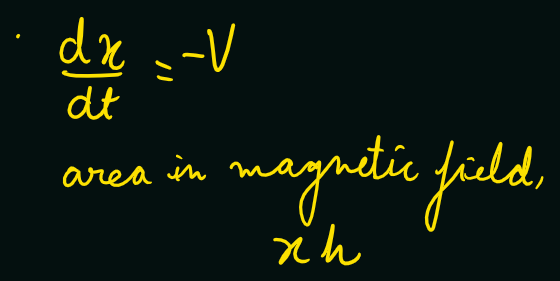 dx/dt = -V
area in magnetic field,
xh